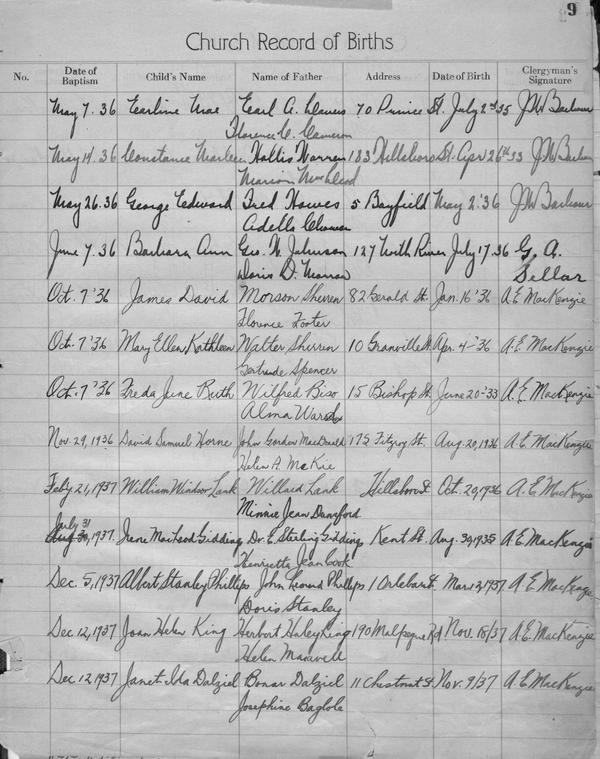 9
Church Record of Births
No. Date of Baptism Child's Name Name of Father Address Date of Birth Clergyman's Signature
May 7. 36 Earline Mae Earl A. 70 Prince St. July 2nd 35 J.W. Barbour
Florence C. Cameron
May 14. 36 Constance Hollis Warren 183 Hillsboro St. Apr 26th 33 J.W. Barbour
Marion
May 26. 36 George Edward Fred Howes 5 Bayfield May 2.'36 J.W. Barbour
Adella
June 7. 36 Barbara Ann Geo. W. Johnson 127 River July 17.36 G. A. Sellar
Doris D.
Oct. 7 '36 James David Morson Sherren 82 Gerald St. Jan. 16 '36 A.E. MacKenzie
Florence Foster
Oct. 7 '36 Mary Ellen Kathleen Walter Sherren 10 Granville St. Apr. 4-'36 A.E. MacKenzie
Gertrude Spencer
Oct. 7 '36 Freda June Ruth Wilfred 15 Bishop St. June 20-'33 A.E. MacKenzie
Alma
Nov. 29, 1936 David Samuel Horne John Gordon MacDonald 175 Fitzroy St. Aug. 20, 1936 A.E. MacKenzie
Helen A. McKie
Feb. 21, 1937 William Windsor Lank Willard Lank Hillsboro St Oct. 20, 1936 A.E. MacKenzie
Minnie Jean
July 31
1937. June MacLeod Gidding Dr. E. Sterling Gidding Kent St. Aug. 30, 1935 A.E. MacKenzie
Henrietta Jean Cook
Dec. 5, 1937 Albert Stanley Phillips John Leonard Phillips 1 Orlebar St Mar. 1937 A.E. MacKenzie
Doris Stanley
Dec. 12, 1937 Joan Helen King Herbert Haley King 190 Malpeque Rd Nov. 18/37 A.E. MacKenzie
Helen Maxwell
Dec. 12 1937 Janet Ida Dalziel Bonar Dalziel 11 Chestnut St. Nov. 9/37 A.E. MacKenzie
Josephine Baglole